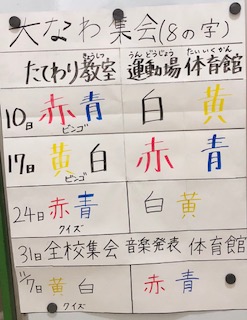 大なわ集会(8の字)
きょうしつ うんどうじょう たいいくかん
たてわり教室 運動場 体育館
10日 赤 青 白 黄
ビンゴ
17日 黄 白 赤 青
ビンゴ
24日 赤 青 白 黄
クイズ
31日 全校集会 音楽発表 体育館
11/7日 黄 白 赤 青
クイズ